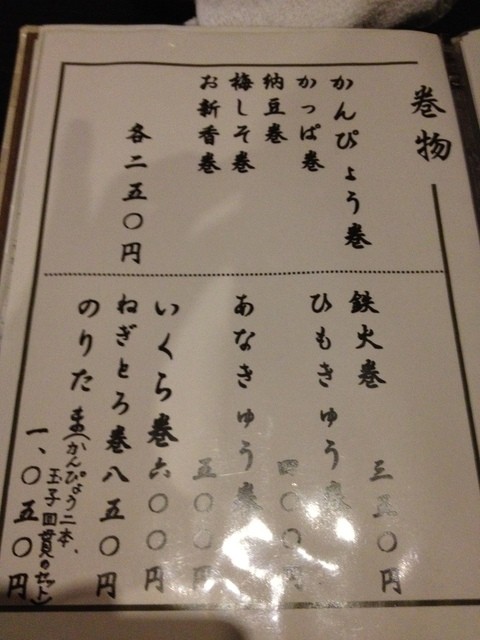 巻物
かんぴょう巻
かっぱ巻
納豆巻
梅しそ巻
お新香巻
各二五〇円
鉄火巻 三五〇円
ひもきゅう巻 四〇〇円
あなきゅう巻 五〇〇円
いくら巻 六〇〇円
ねぎとろ巻 八五〇円
のりたま(かんぴょう二本、
玉子四貫のセット)
一、〇五〇円